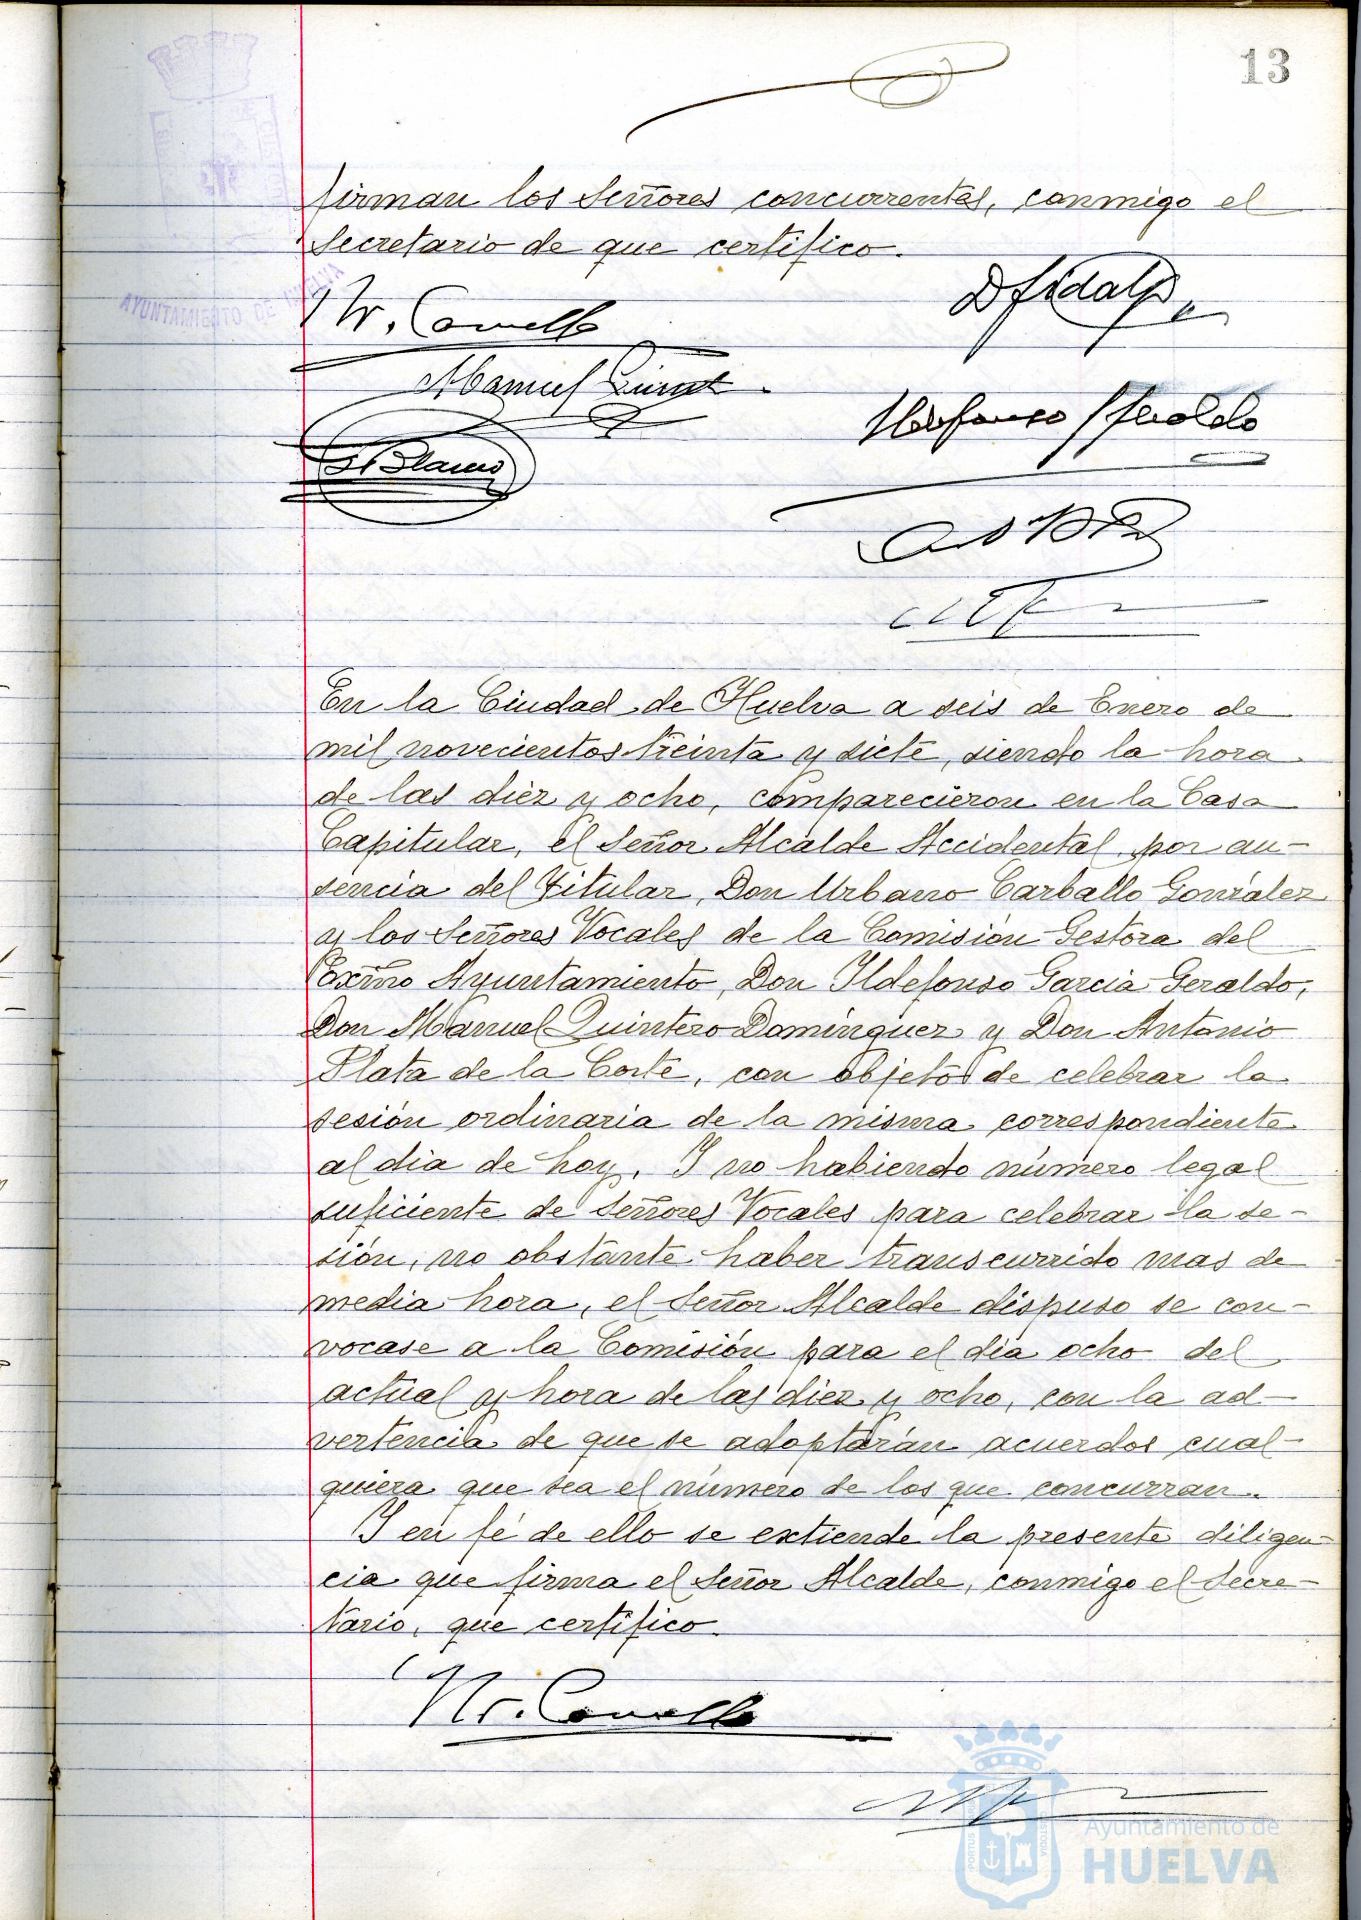 13
firman los Señores concurrentes, conmigo el
Secretario de que certifico.
AYUNTAMIENTO DE HUELVA
Manuel Quint
Ildefonso G Geraldo
S. Blanco
En la Ciudad de Huelva a seis de Enero de
mil novecientos treinta y siete, siendo la hora
de las diez y ocho, comparecieron en la Casa
Capitular, el Señor Alcalde Accidental, por au-
sencia del Titular, Don Urbano Carballo González
y los Señores Vocales de la Comisión Gestora del
Excmo Ayuntamiento, Don Ildefonso Garcia Geraldo,
Don Manuel Quintero Domínguez y Don Antonio
Plata de la Corte, con objeto de celebrar la
sesión ordinaria de la misma correspondiente
al dia de hoy. Y no habiendo número legal
suficiente de Señores Vocales para celebrar la se-
sión, no obstante haber transcurrido mas de
media hora, el Señor Alcalde dispuso se con-
vocase a la Comisión para el dia ocho del
actual y hora de las diez y ocho, con la ad-
vertencia de que se adoptarán acuerdos cual-
quiera que sea el número de los que concurran.
Y en fé de ello se extiende la presente diligen-
cia que firma el Señor Alcalde, conmigo el Secre-
tario, que certifico.
Ayuntamiento de
HUELVA